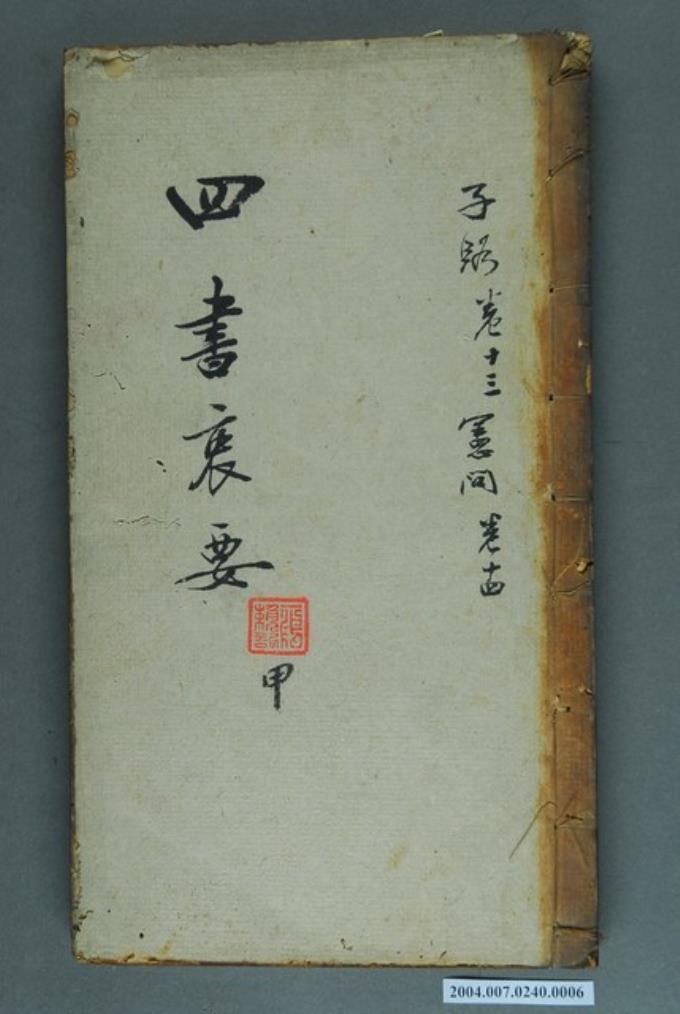 子路卷十三憲問卷十四
四書衷要
甲
2004.007.0240.0006